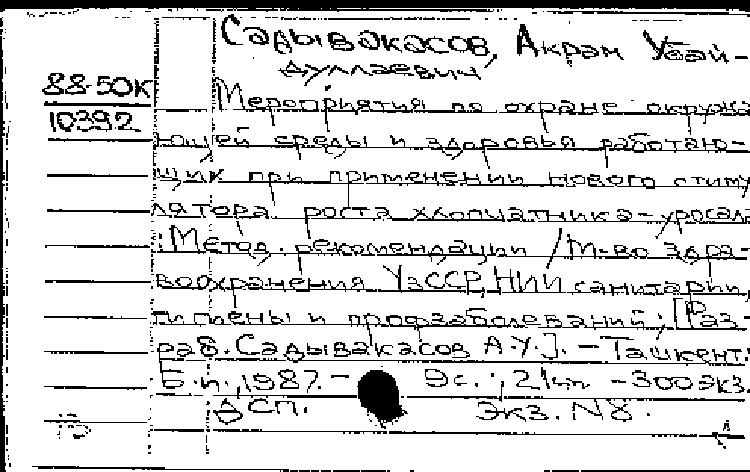 Садывакасов, Акрам Убай-
дуллаевич
88-50К
10392
Мероприятия по охране окружа
ющей среды и здоровья работаю-
щих при применении нового стиму
лятора роста хлопчатника-уросала
: Метод. рекомендации / М-во здра-
воохранения УзССР, НИИ санитарии,
гигиены и профзаболеваний; [Раз-
раб. Садывакасов А.У.]. - Ташкент:
Б.и., 1987. - 9с.; 21см. - 300экз.
ДСП. Экз. N8.